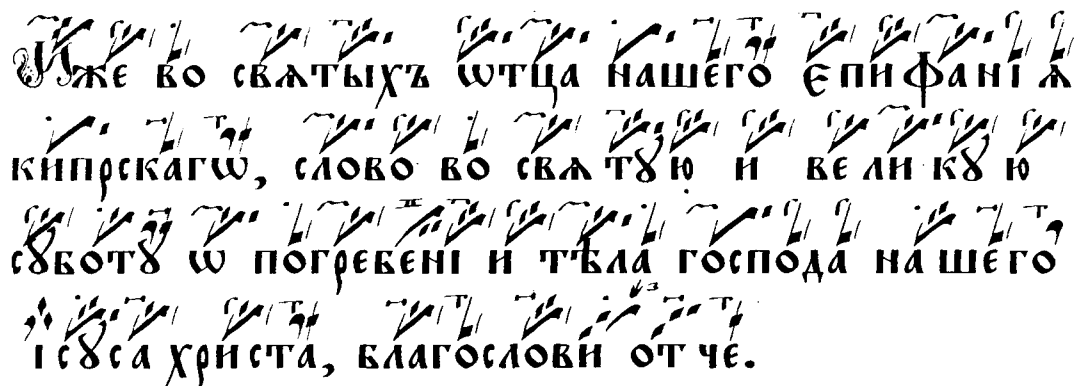 Иже во свѧтыхъ ѡтца нашего Єпифанїѧ
кипрскагѡ, слово во свѧтꙋю и великꙋю
сꙋботꙋ ѡ погребенїи тѣла господа нашего
їсꙋса христа, благослови отче.